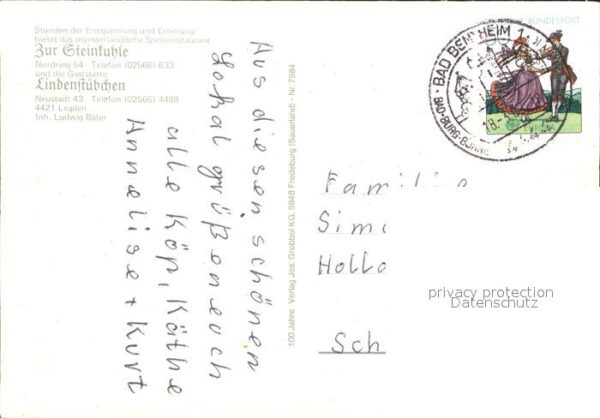 Stunden der Entspannung und Erholung
bietet das münsterländische Speiserestaurant
Zur Steinkuhle
Nordring 54 · Telefon (02566) 633
und die Gaststätte
Lindenstübchen
Neustadt 43 · Telefon (02566) 4488
4421 Legden
Inh. Ludwig Bäter
Aus diesen schönen
Lokal grüßen euch
alle Köp, Käthe
Annelise + Kurt
100 Jahre Verlag Jos. Grobbel KG, 5948 Fredeburg (Sauerland) · Nr. 7984
BUNDESPOST
BAD BENTHEIM 1
BURG-BÜHNE
18.-
Familie
Sim
Hollo
Sch
privacy protection
Datenschutz